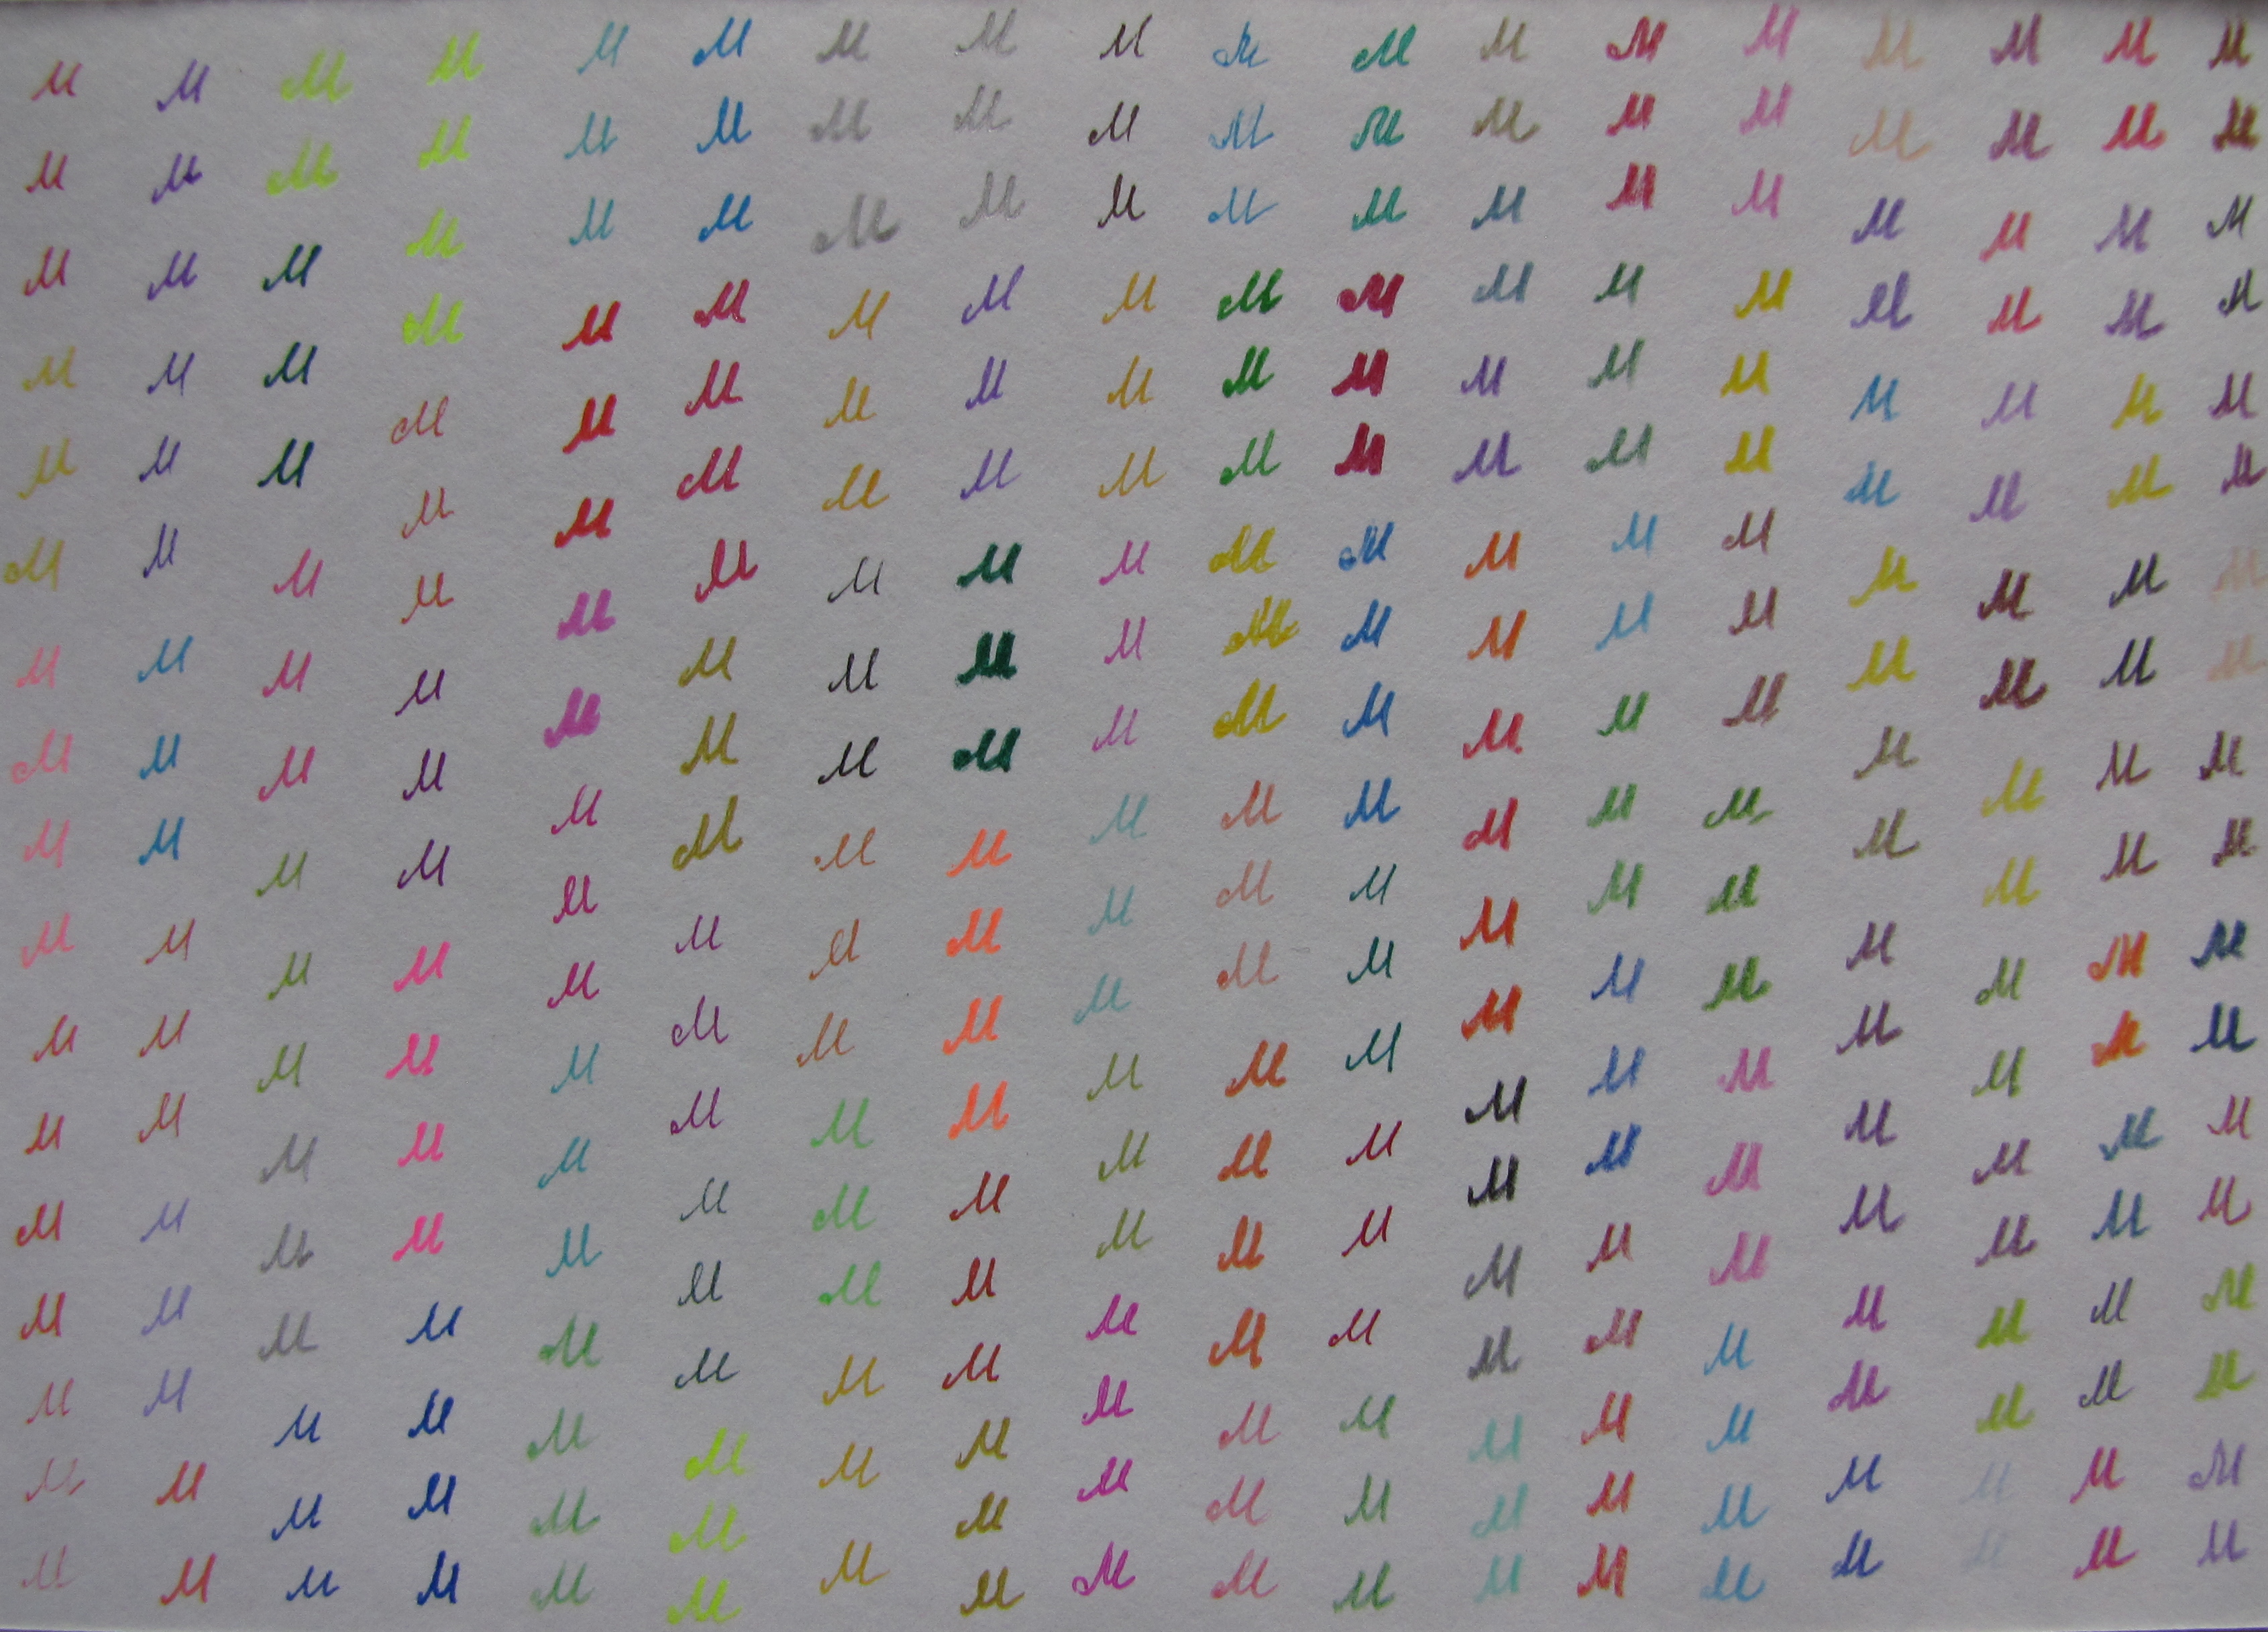 м м м м м м м м м м м м м м м м м м
м м м м м м м м м м м м м м м м м м
м м м м м м м м м м м м м м м м м м
м м м м м м м м м м м м м м м м м м
м м м м м м м м м м м м м м м м м м
м м м м м м м м м м м м м м м м м м
м м м м м м м м м м м м м м м м м м
м м м м м м м м м м м м м м м м м м
м м м м м м м м м м м м м м м м м м
м м м м м м м м м м м м м м м м м м
м м м м м м м м м м м м м м м м м м
м м м м м м м м м м м м м м м м м м
м м м м м м м м м м м м м м м м м м
м м м м м м м м м м м м м м м м м м
м м м м м м м м м м м м м м м м м м
м м м м м м м м м м м м м м м м м м
м м м м м м м м м м м м м м м м м м
м м м м м м м м м м м м м м м